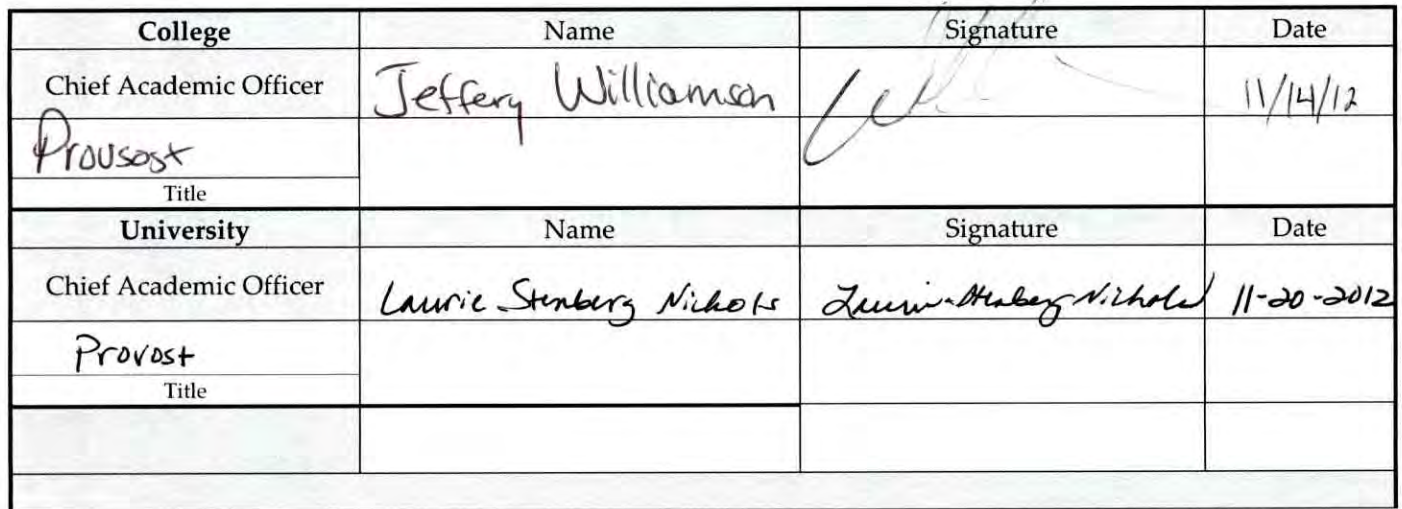 College Name Signature Date
Chief Academic Officer Jeffery Williamson 11/14/12
Provsost
Title
University Name Signature Date
Chief Academic Officer Laurie Stenberg Nichols Laurie Stenberg Nichols 11-20-2012
Provost
Title